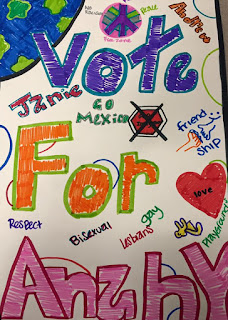 peace
Vote
Janie
Go
Mexico
friend
ship
For
love
Respect
Bisexual
Lesbians
gay
Anzhy